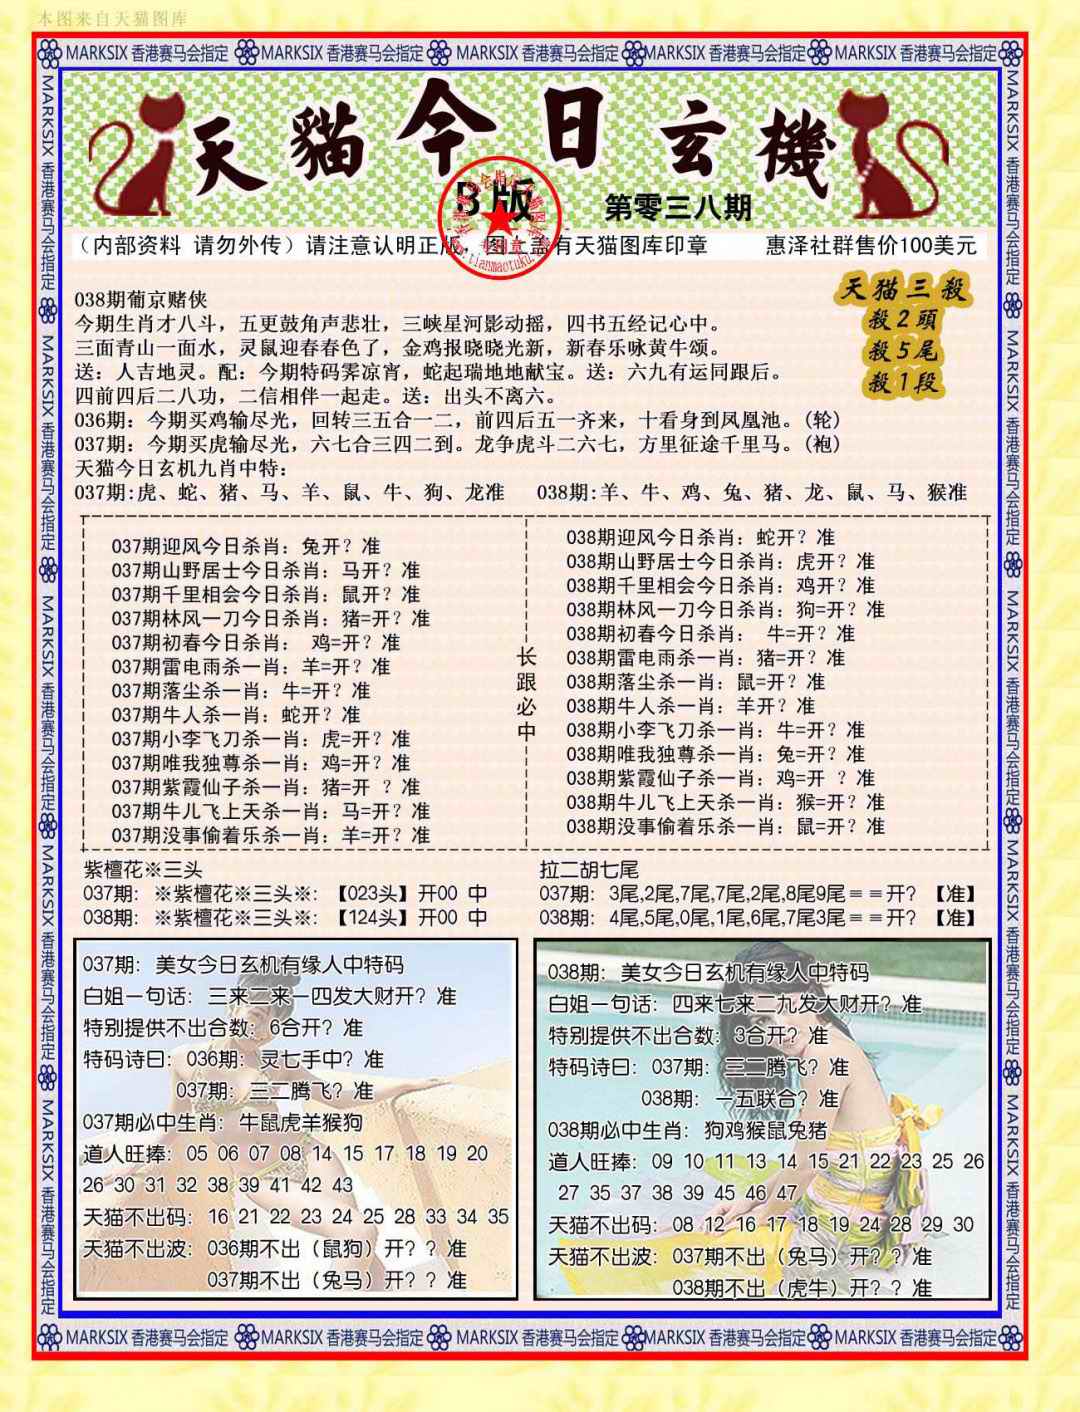 本图来自天猫图库
MARKSIX 香港赛马会指定 MARKSIX 香港赛马会指定 MARKSIX 香港赛马会指定 MARKSIX 香港赛马会指定 MARKSIX 香港赛马会指定
天貓今日玄機
B版
第零三八期
（内部资料 请勿外传）请注意认明正版，图上盖有天猫图库印章 惠泽社群售价100美元
天猫三殺
殺2頭
殺5尾
殺1段
038期葡京赌侠
今期生肖才八斗，五更鼓角声悲壮，三峡星河影动摇，四书五经记心中。
三面青山一面水，灵鼠迎春春色了，金鸡报晓晓光新，新春乐咏黄牛颂。
送：人吉地灵。配：今期特码霁凉宵，蛇起瑞地地献宝。送：六九有运同跟后。
四前四后二八功，二信相伴一起走。送：出头不离六。
036期：今期买鸡输尽光，回转三五合一二，前四后五一齐来，十看身到凤凰池。(轮)
037期：今期买虎输尽光，六七合三四二到。龙争虎斗二六七，方里征途千里马。(袍)
天猫今日玄机九肖中特：
037期:虎、蛇、猪、马、羊、鼠、牛、狗、龙准 038期:羊、牛、鸡、兔、猪、龙、鼠、马、猴准
037期迎风今日杀肖：兔开？准
037期山野居士今日杀肖：马开？准
037期千里相会今日杀肖：鼠开？准
037期林风一刀今日杀肖：猪=开？准
037期初春今日杀肖： 鸡=开？准
037期雷电雨杀一肖：羊=开？准
037期落尘杀一肖：牛=开？准
037期牛人杀一肖：蛇开？准
037期小李飞刀杀一肖：虎=开？准
037期唯我独尊杀一肖：鸡=开？准
037期紫霞仙子杀一肖：猪=开 ？准
037期牛儿飞上天杀一肖：马=开？准
037期没事偷着乐杀一肖：羊=开？准
长跟必中
038期迎风今日杀肖：蛇开？准
038期山野居士今日杀肖：虎开？准
038期千里相会今日杀肖：鸡开？准
038期林风一刀今日杀肖：狗=开？准
038期初春今日杀肖： 牛=开？准
038期雷电雨杀一肖：猪=开？准
038期落尘杀一肖：鼠=开？准
038期牛人杀一肖：羊开？准
038期小李飞刀杀一肖：牛=开？准
038期唯我独尊杀一肖：兔=开？准
038期紫霞仙子杀一肖：鸡=开 ？准
038期牛儿飞上天杀一肖：猴=开？准
038期没事偷着乐杀一肖：鼠=开？准
紫檀花※三头
037期：※紫檀花※三头※：【023头】开00 中
038期：※紫檀花※三头※：【124头】开00 中
拉二胡七尾
037期：3尾,2尾,7尾,7尾,2尾,8尾9尾＝＝开？【准】
038期：4尾,5尾,0尾,1尾,6尾,7尾3尾＝＝开？【准】
037期：美女今日玄机有缘人中特码
白姐一句话：三来二来一四发大财开？准
特别提供不出合数：6合开？准
特码诗曰：036期：灵七手中？准
037期：三二腾飞？准
037期必中生肖：牛鼠虎羊猴狗
道人旺捧：05 06 07 08 14 15 17 18 19 20
26 30 31 32 38 39 41 42 43
天猫不出码：16 21 22 23 24 25 28 33 34 35
天猫不出波：036期不出（鼠狗）开？？准
037期不出（兔马）开？？准
038期：美女今日玄机有缘人中特码
白姐一句话：四来七来二九发大财开？准
特别提供不出合数：3合开？准
特码诗曰：037期：三二腾飞？准
038期：一五联合？准
038期必中生肖：狗鸡猴鼠兔猪
道人旺捧：09 10 11 13 14 15 21 22 23 25 26
27 35 37 38 39 45 46 47
天猫不出码：08 12 16 17 18 19 24 28 29 30
天猫不出波：037期不出（兔马）开？？准
038期不出（虎牛）开？？准
MARKSIX 香港赛马会指定 MARKSIX 香港赛马会指定 MARKSIX 香港赛马会指定 MARKSIX 香港赛马会指定 MARKSIX 香港赛马会指定